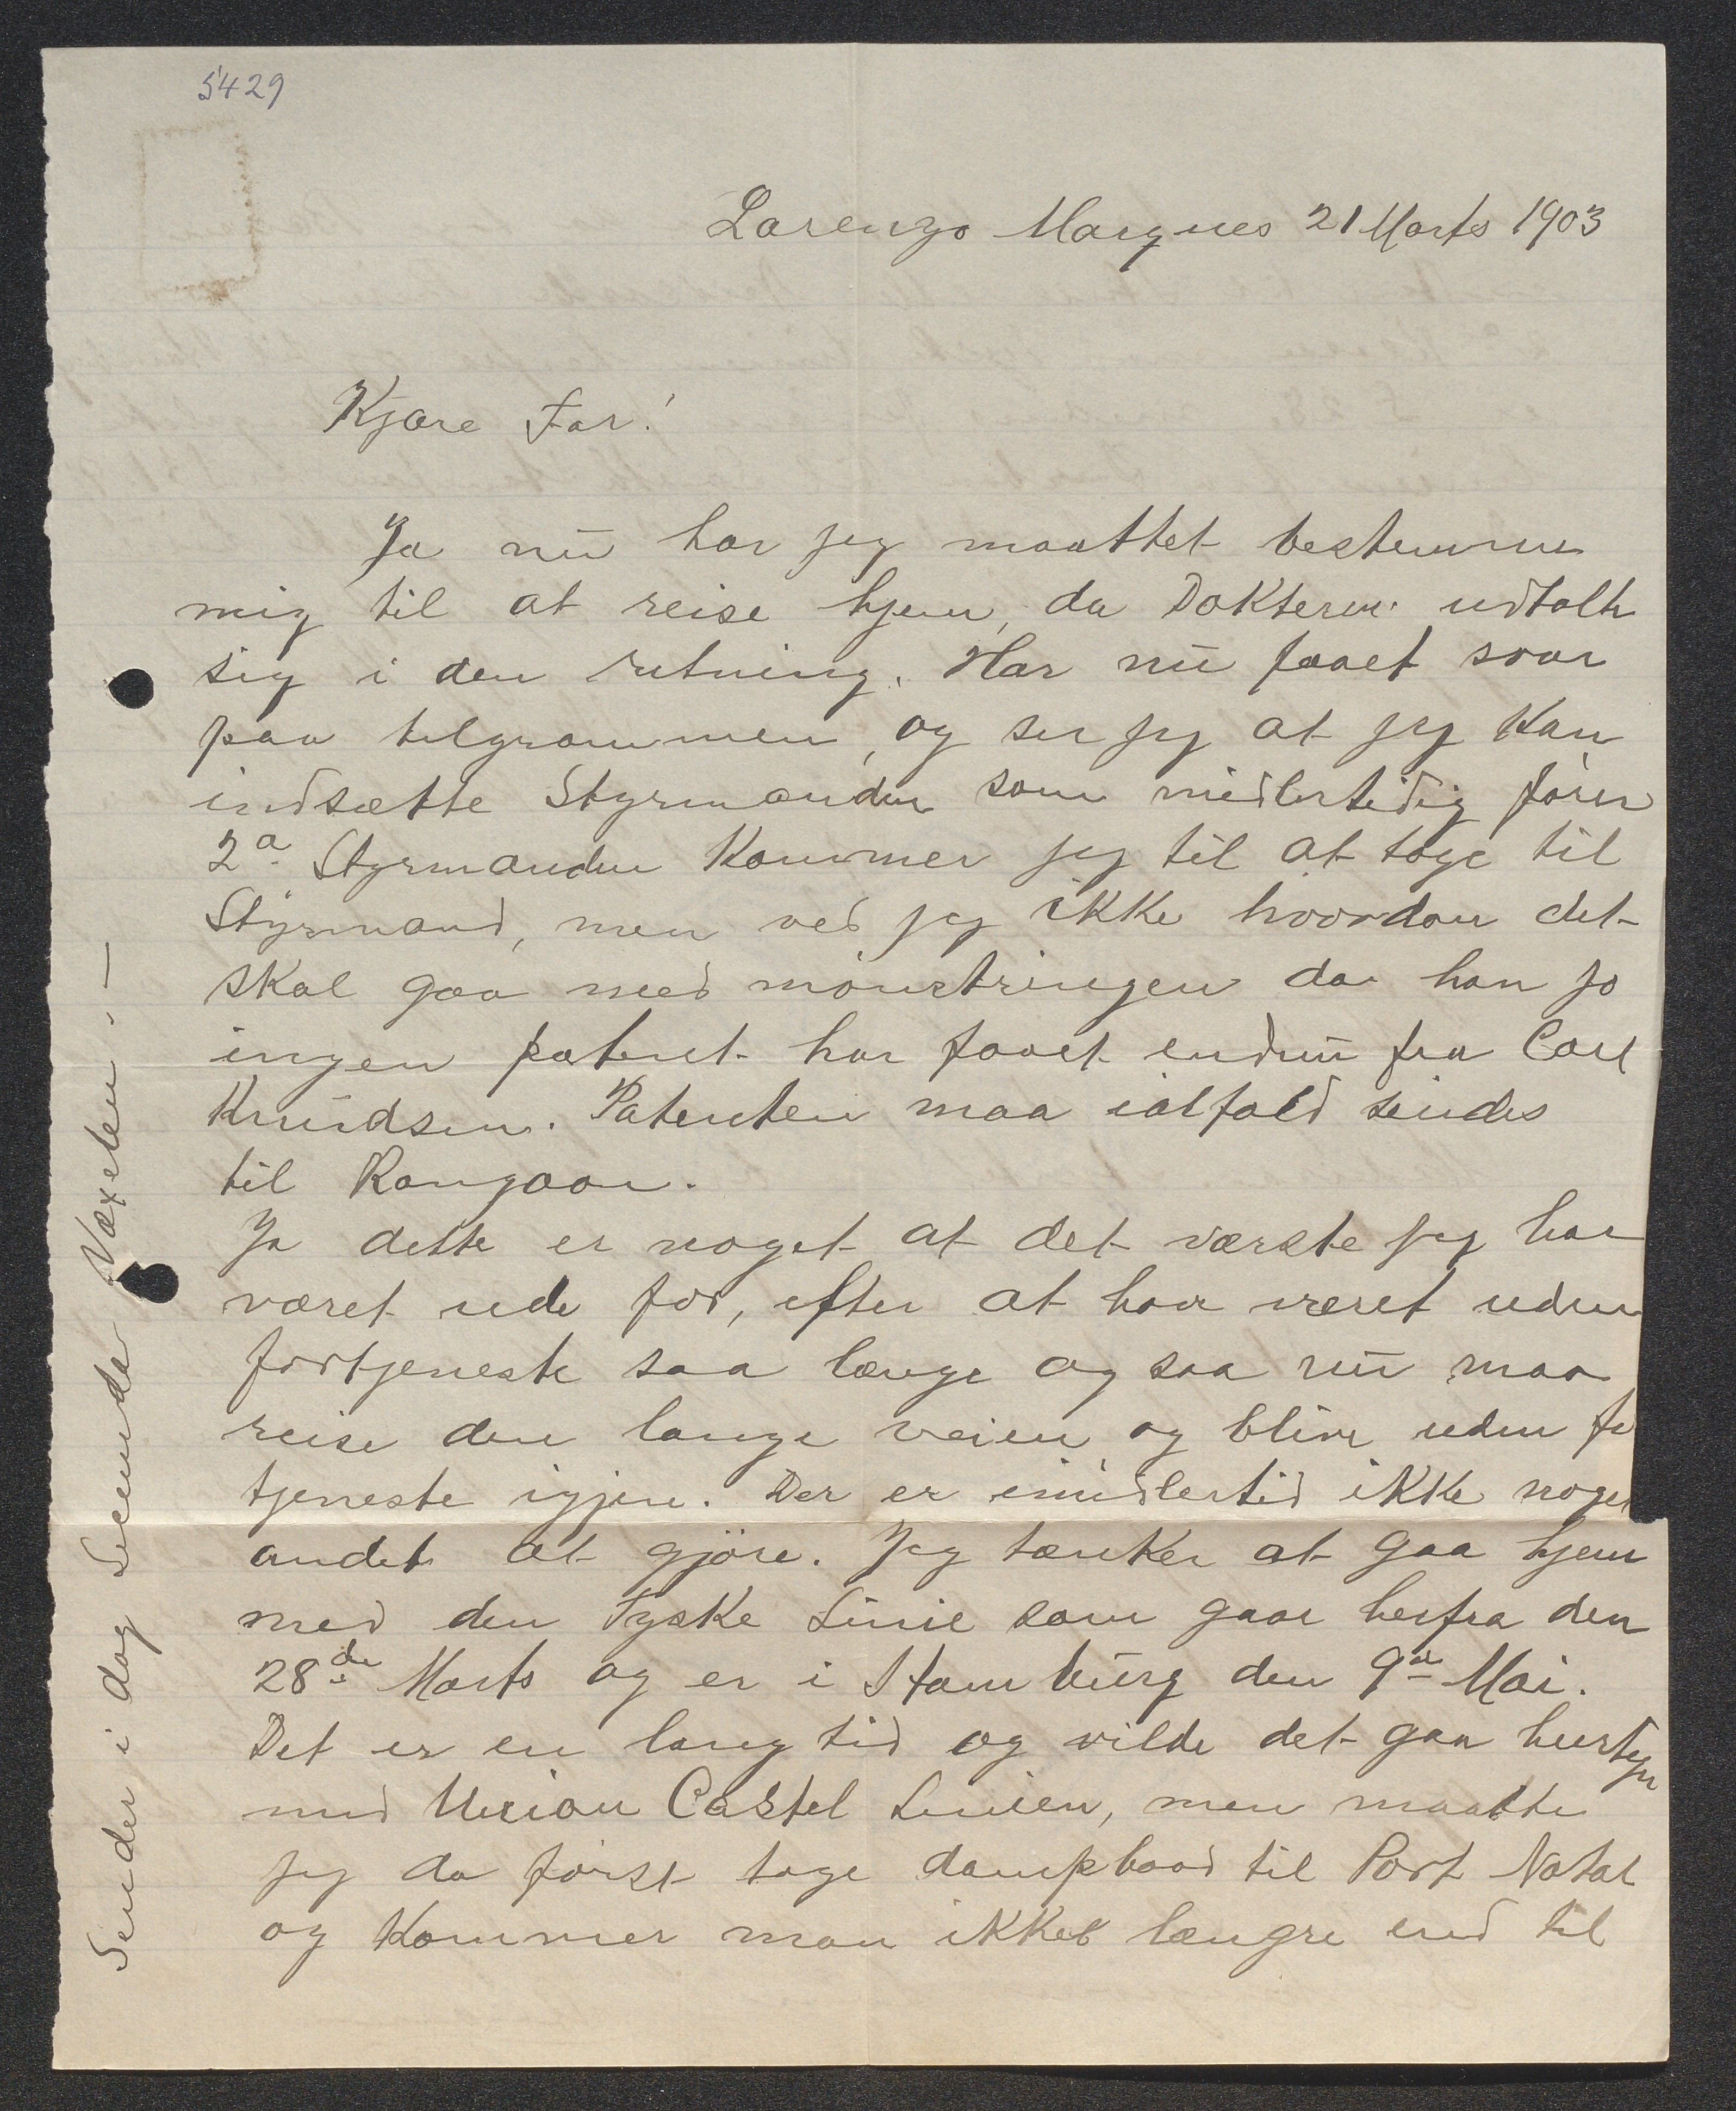 5429
Lorenzo Marques 21 Marts 1903
Kjære Far!
Ja nu har jeg maattet bestemme
mig til at reise hjem, da Dokteren udtalte
sig i den retning. Har nu faaet svar
paa telgrammen, og ser jeg at jeg kan
indsætte Styrmanden som midlertidig fører
2a Styrmanden kommer jeg til at tage til
Styrmand, men ved jeg ikke hvordan det
skal gaa med mönstringen da han jo
ingen patent har faaet endnu fra Carl
Knudsen. Patenten maa ialfald sendes
til Rangoon.
Ja dette er noget at det værste jeg har
været ude for, efter at have været uden
fortjeneste saa længe og saa nu maa
reise den lange veien og blive uden fo
tjeneste igjen. Der er imidlertid ikke noget
andet at gjöre. Jeg tænker at gaa hjem
med den Tyske Linie som gaar herfra den
28de Marts og er i Hamburg den 9de Mai.
Det er en lang tid og vilde det gaa hurtigre
med Union Castel Linien, men maatte
jeg da först tage dampbaad til Port Natal
og kommer man ikke længre end til
Sender i dag Secunda Vexelen.—